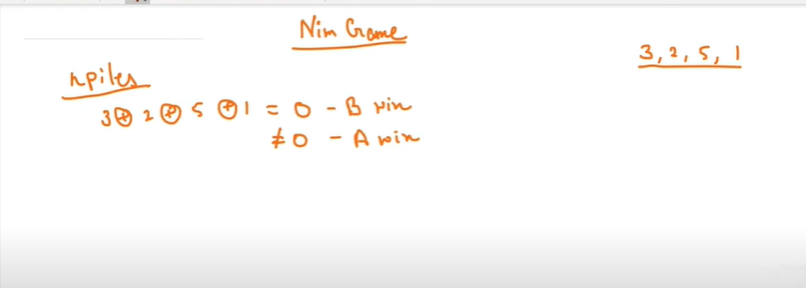 Nim Game
3, 2, 5, 1
n piles
3 ⊕ 2 ⊕ 5 ⊕ 1 = 0 - B win
≠ 0 - A win